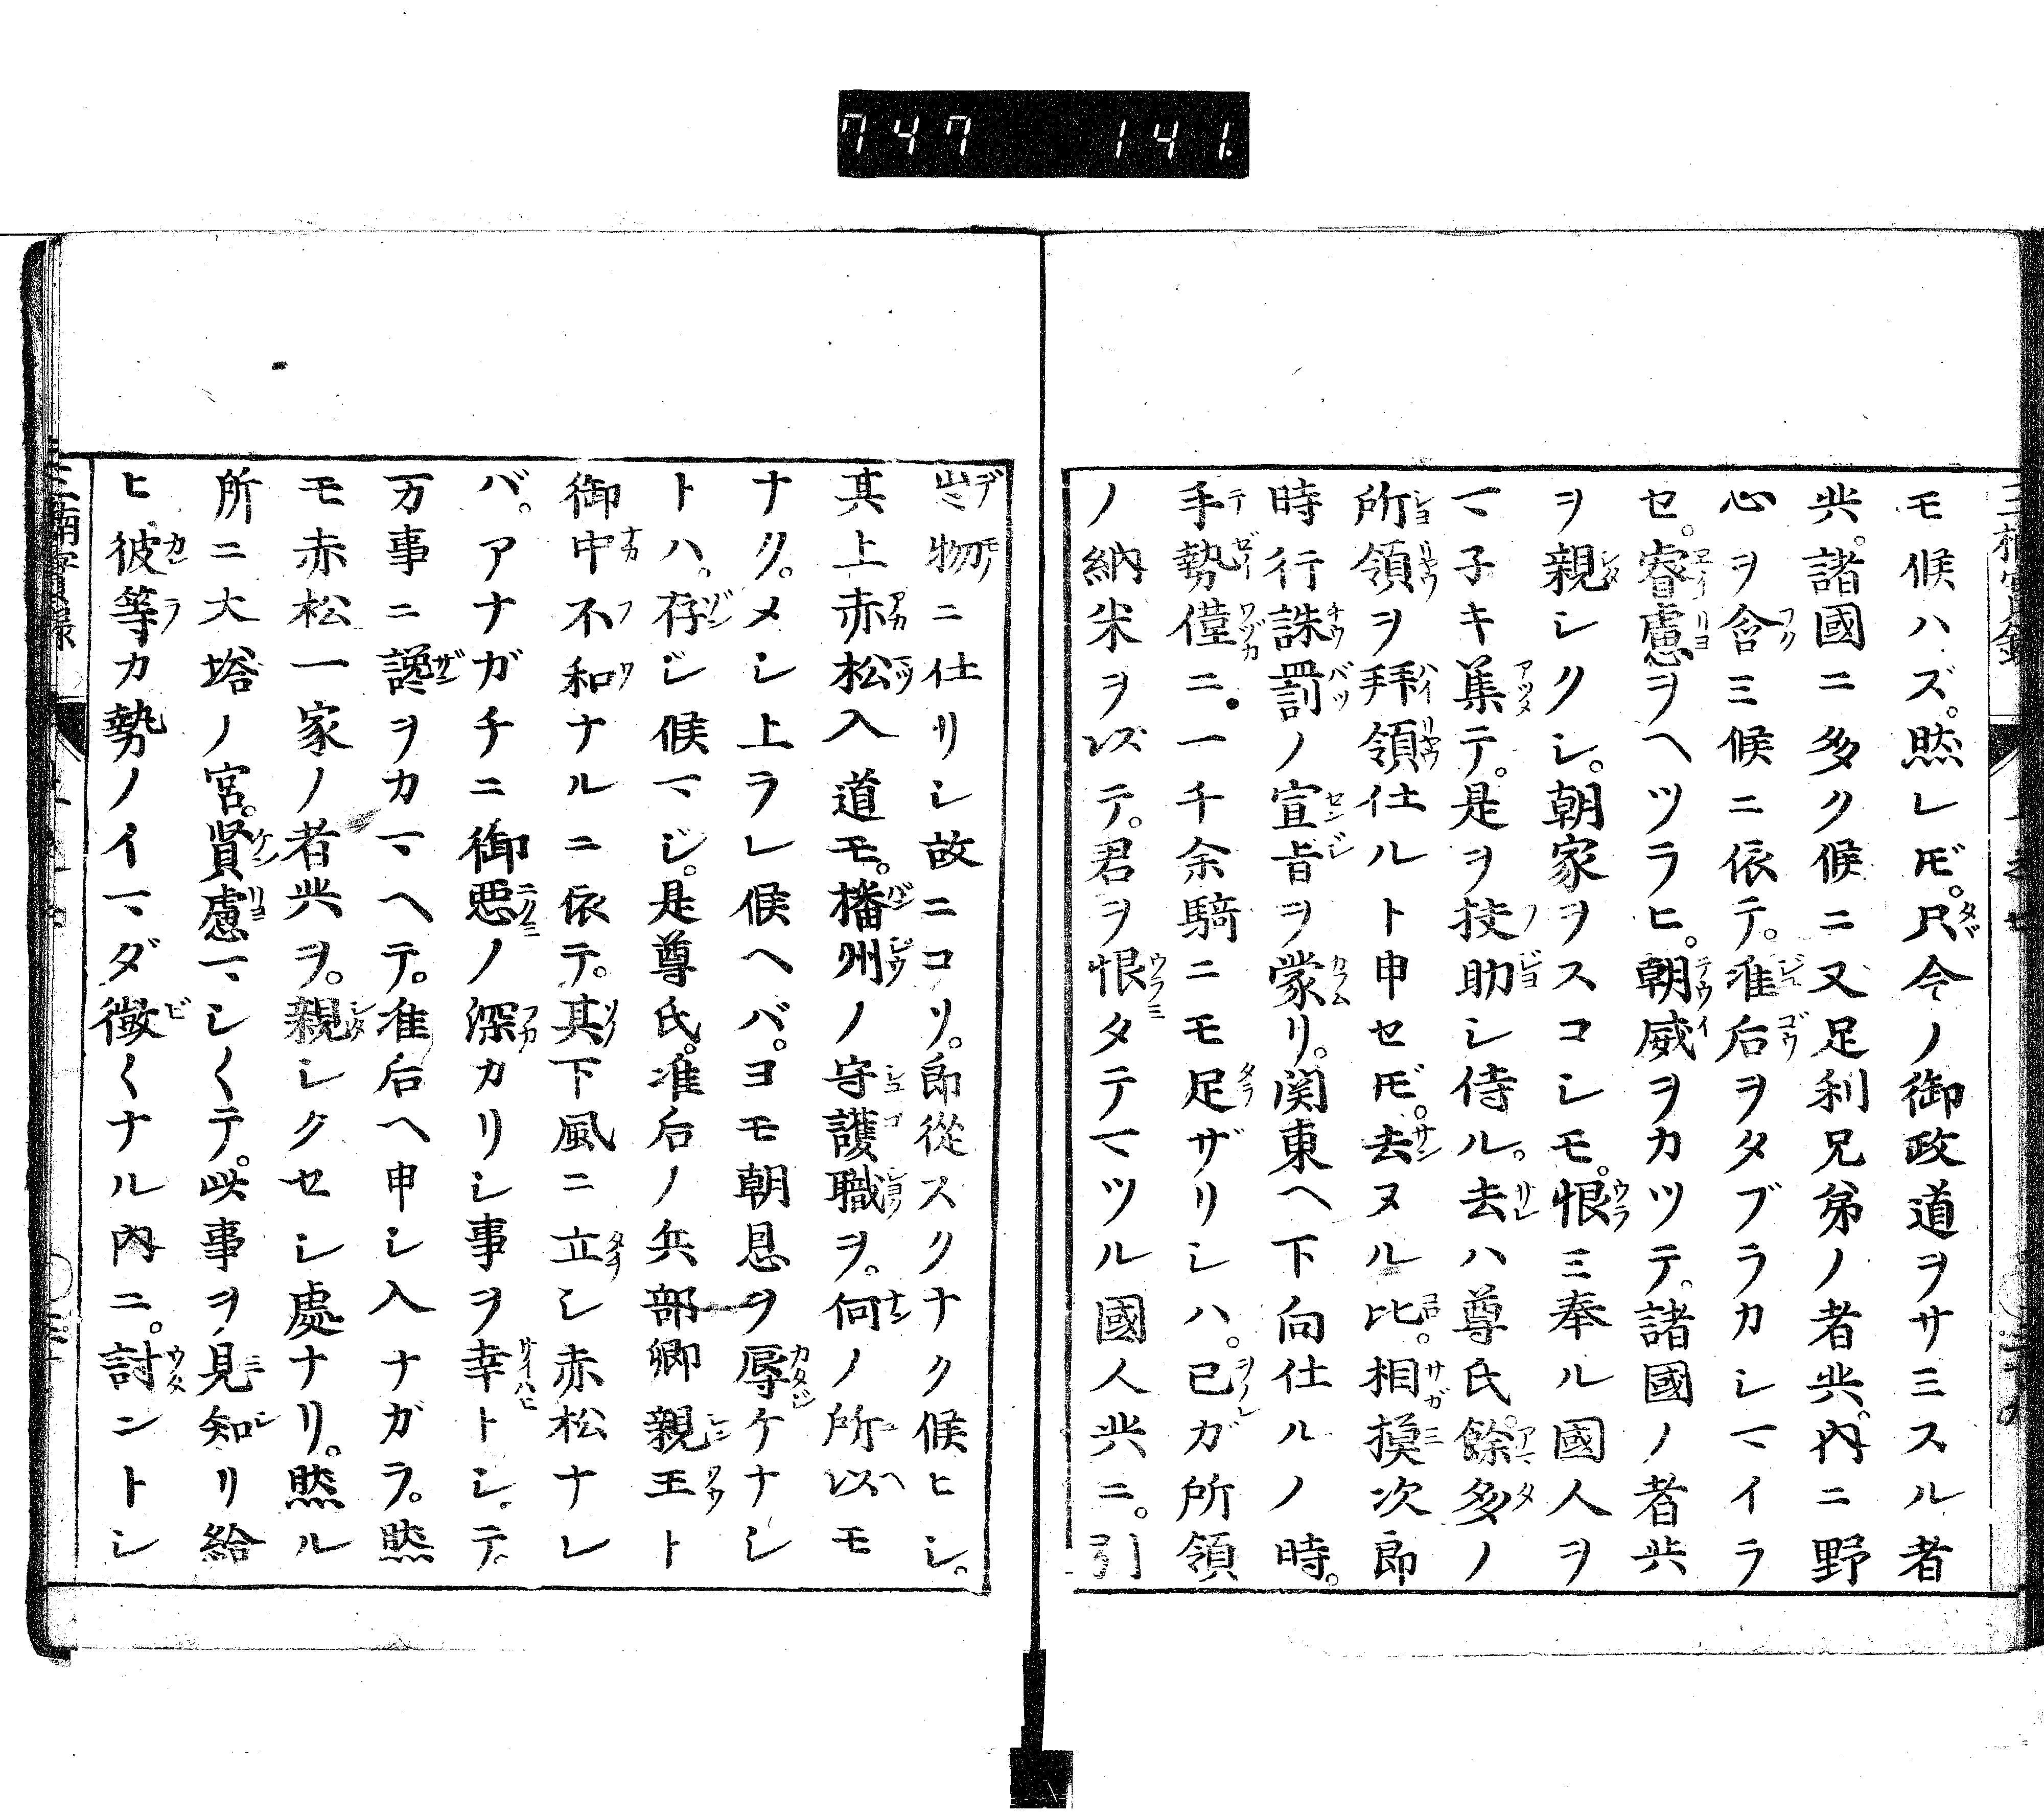 747 141
モ候ハズ。然レ𪜈。只今ノ御政道ヲサミスル者
共。諸國ニ多ク候ニ又足利兄弟ノ者共。内ニ野
心ヲ含ミ候ニ依テ。准后ヲタブラカシマイラ
セ。睿慮ヲヘツラヒ。朝威ヲカツテ。諸國ノ者共
ヲ親シクシ。朝家ヲスコシモ。恨ミ奉ル國人ヲ
マ子キ集テ。是ヲ扶助シ侍ル。去ハ尊氏。餘多ノ
所領ヲ拜領仕ルト申セ𪜈。去ヌル比。相摸次郎
時行誅罰ノ宣旨ヲ蒙リ。関東ヘ下向仕ルノ時。
手勢僅ニ。一千余騎ニモ足ザリシハ。己ガ所領
ノ納米ヲ以テ。君ヲ恨タテマツル國人共ニ。引
出物ニ仕リシ故ニコソ。郎從スクナク候ヒシ。
其上赤松入道モ。播州ノ守護職ヲ。何ノ所以モ
ナク。メシ上ラレ候ヘバ。ヨモ朝恩ヲ辱ケナシ
トハ。存ジ候マジ。是尊氏。准后ノ兵部卿親王ト
御中不和ナルニ依テ。其下風ニ立シ赤松ナレ
バ。アナガチニ御悪ノ深カリシ事ヲ幸トシ。テ。
万事ニ讒ヲカマヘテ。准后ヘ申シ入ナガラ。然
モ赤松一家ノ者共ヲ。親シクセシ處ナリ。然ル
所ニ大塔ノ宮。賢慮マシ〱テ。此事ヲ見知リ給
ヒ彼等カ勢ノイマダ微〱ナル内ニ。討ントシ